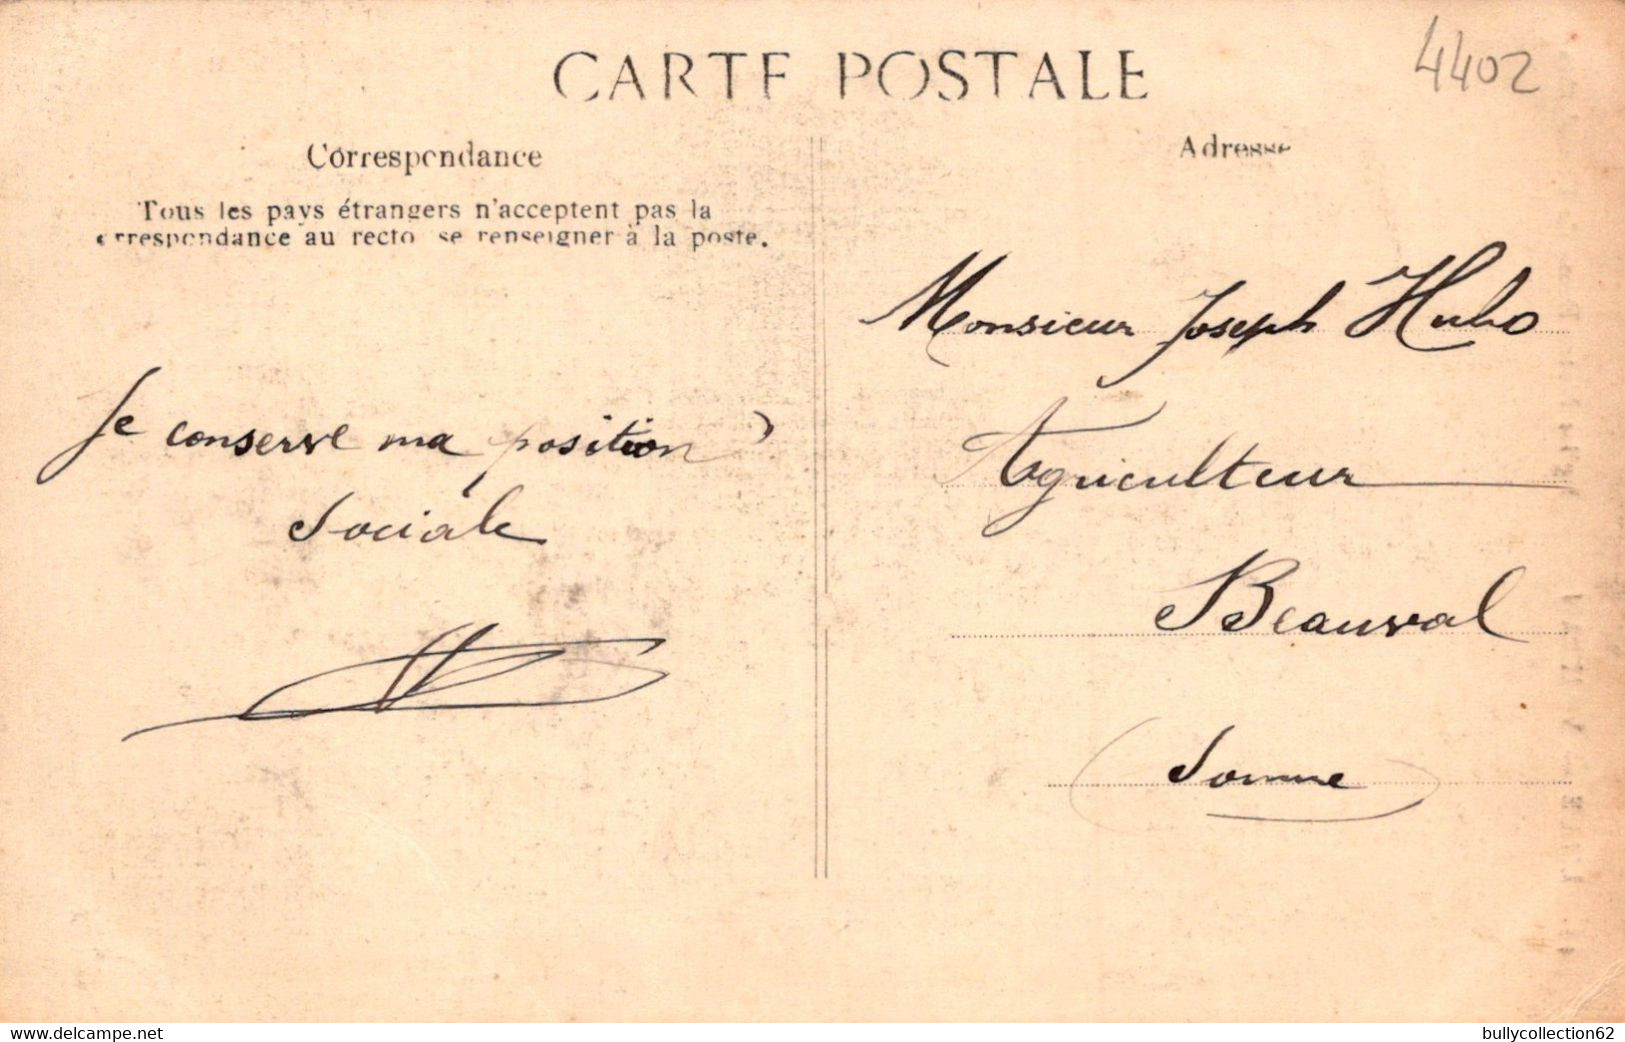 4402
CARTE POSTALE
Correspondance
Tous les pays étrangers n'acceptent pas la
correspondance au recto se renseigner à la poste.
Je conserve ma position
Sociale
Adresse
Monsieur Joseph Hubo
Agriculteur
Beauval
(Somme)
delcampe.net
bullycollection62